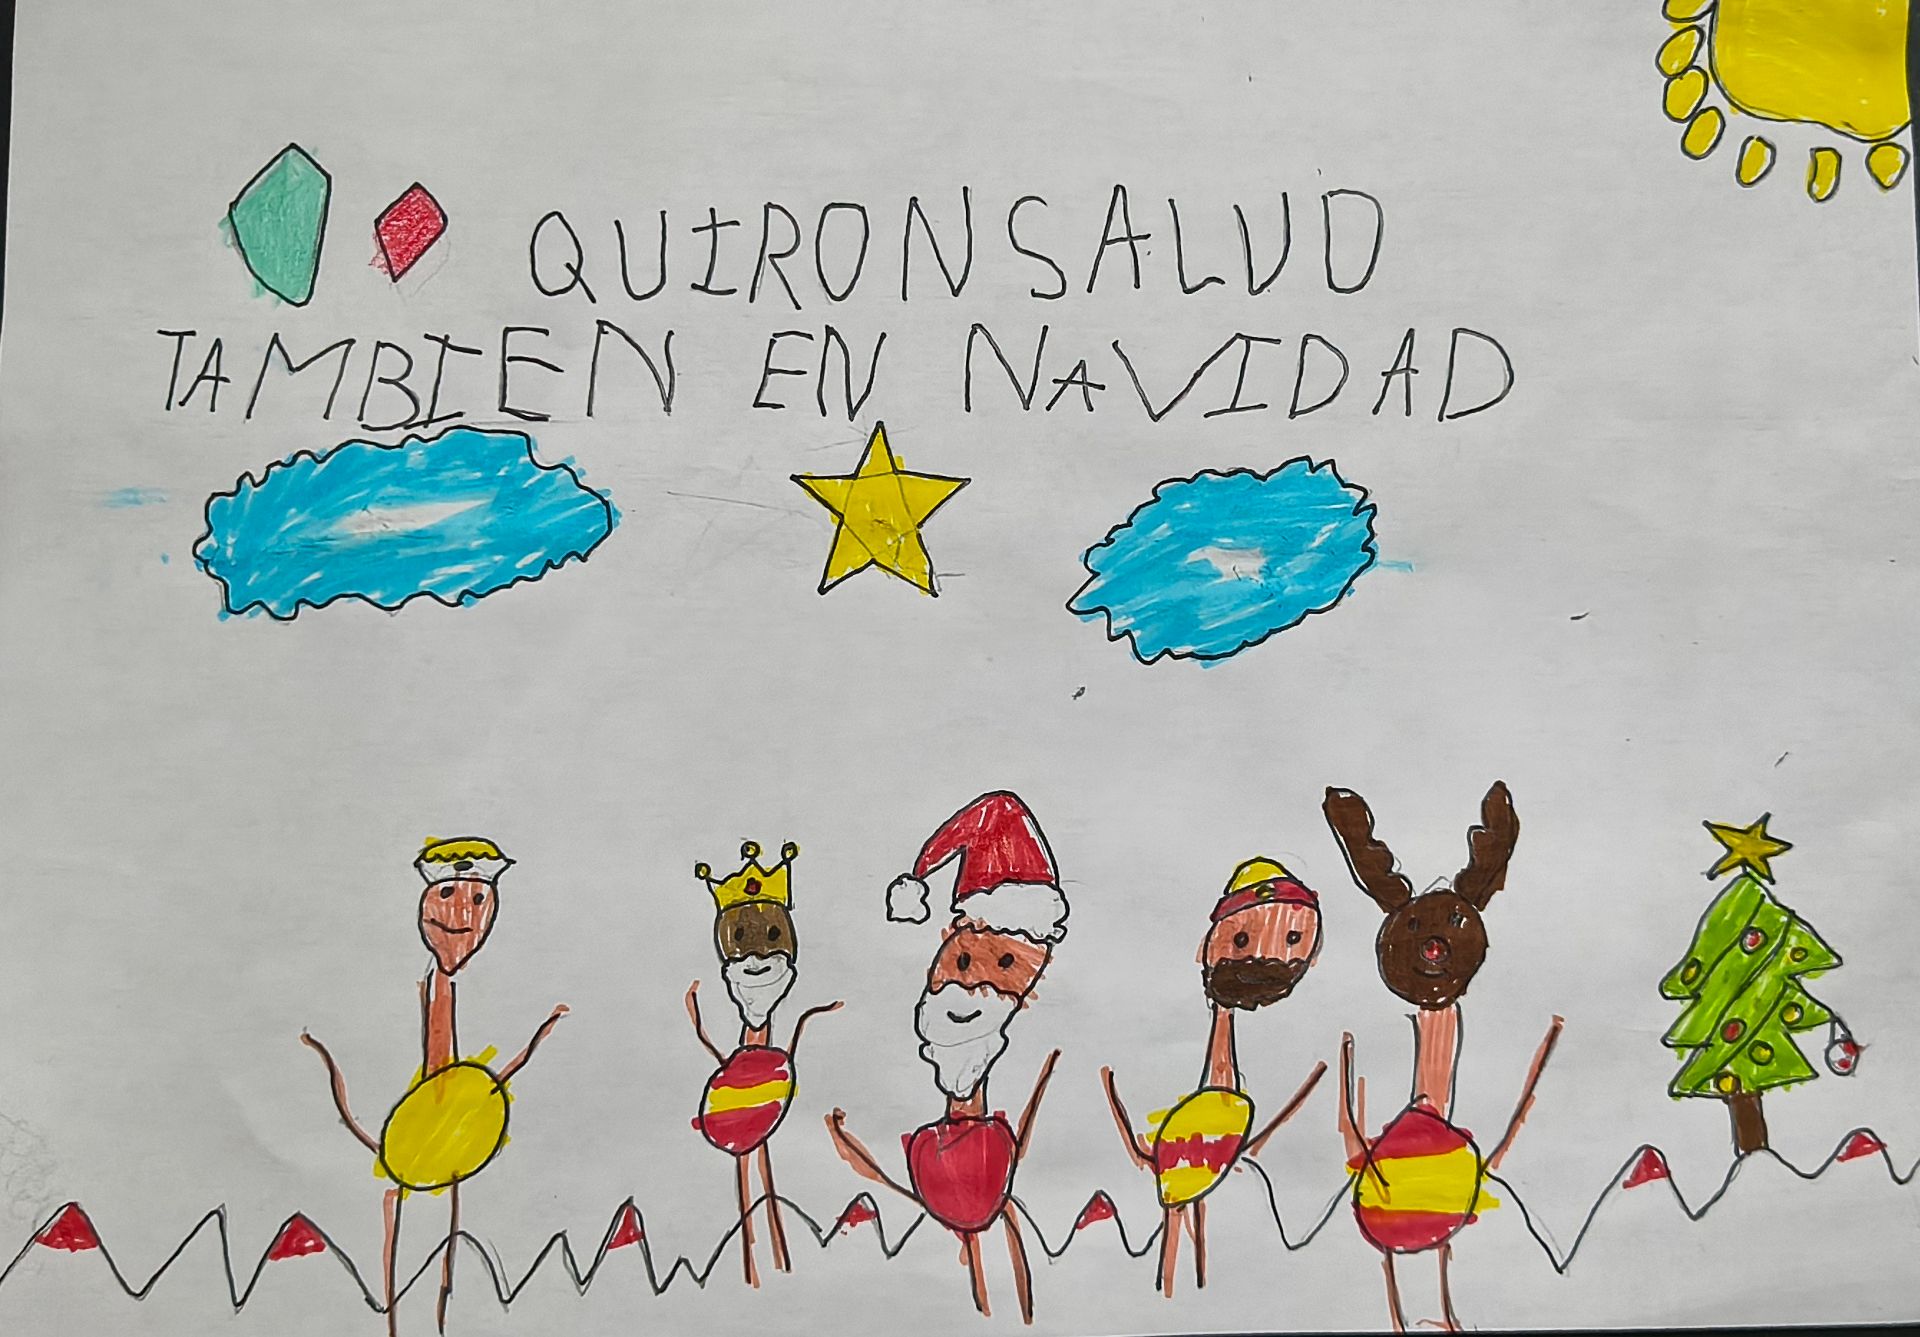 QUIRONSALUD
TAMBIEN EN NAVIDAD